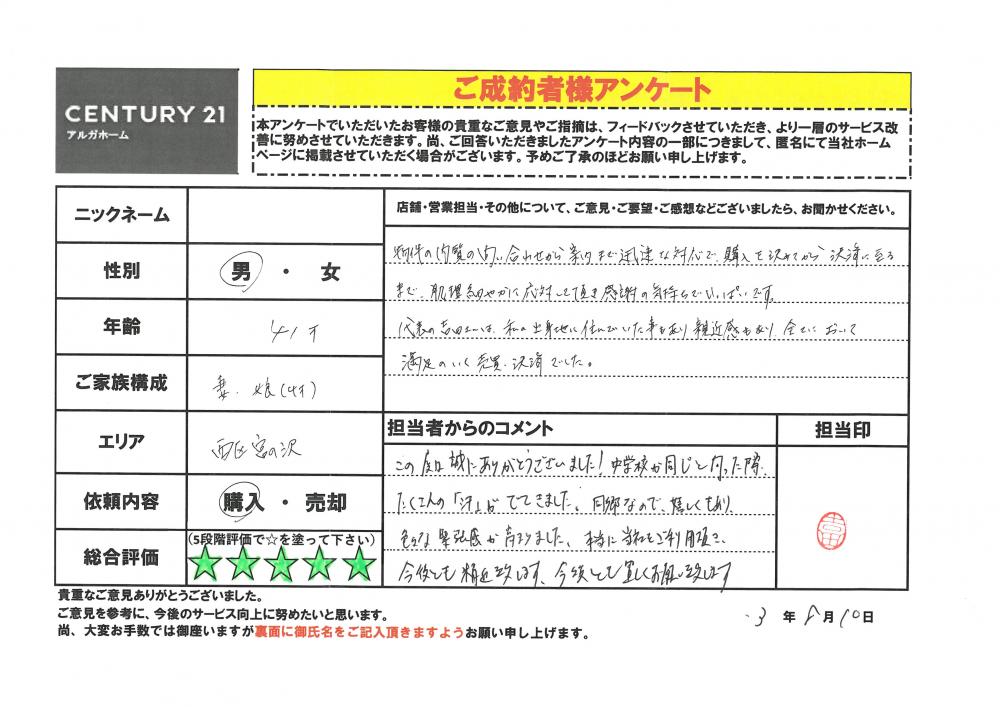 CENTURY 21
アルガホーム
ご成約者様アンケート
本アンケートでいただいたお客様の貴重なご意見やご指摘は、フィードバックさせていただき、より一層のサービス改
善に努めさせていただきます。尚、ご回答いただきましたアンケート内容の一部につきまして、匿名にて当社ホーム
ページに掲載させていただく場合がございます。予めご了承のほどお願い申し上げます。
ニックネーム
性別
男 ・ 女
年齢
41才
ご家族構成
妻、娘(4才)
エリア
西区宮の沢
依頼内容
購入 ・ 売却
総合評価
(5段階評価で☆を塗って下さい)
店舗・営業担当・その他について、ご意見・ご要望・ご感想などございましたら、お聞かせください。
物件の内覧の問い合わせから案内まで迅速な対応で、購入を決めてから決済に至る
まで、肌理細やかに応対して頂き感謝の気持ちでいっぱいです。
代表の吉田さんは、私の出身地に住んでいた事もあり親近感もあり、全てにおいて
満足のいく売買、決済でした。
担当者からのコメント
担当印
この度は誠にありがとうございました!中学校が同じと伺った際、
たくさんの「汗」がでてきました。同郷なので、嬉しくもあり、
色々な緊張感が高まりました。本当に当社をご利用頂き、
今後とも精進致します、今後とも宜しくお願い致します
吉田
貴重なご意見ありがとうございました。
ご意見を参考に、今後のサービス向上に努めたいと思います。
尚、大変お手数では御座いますが裏面に御氏名をご記入頂きますようお願い申し上げます。
3 年 8 月 10 日